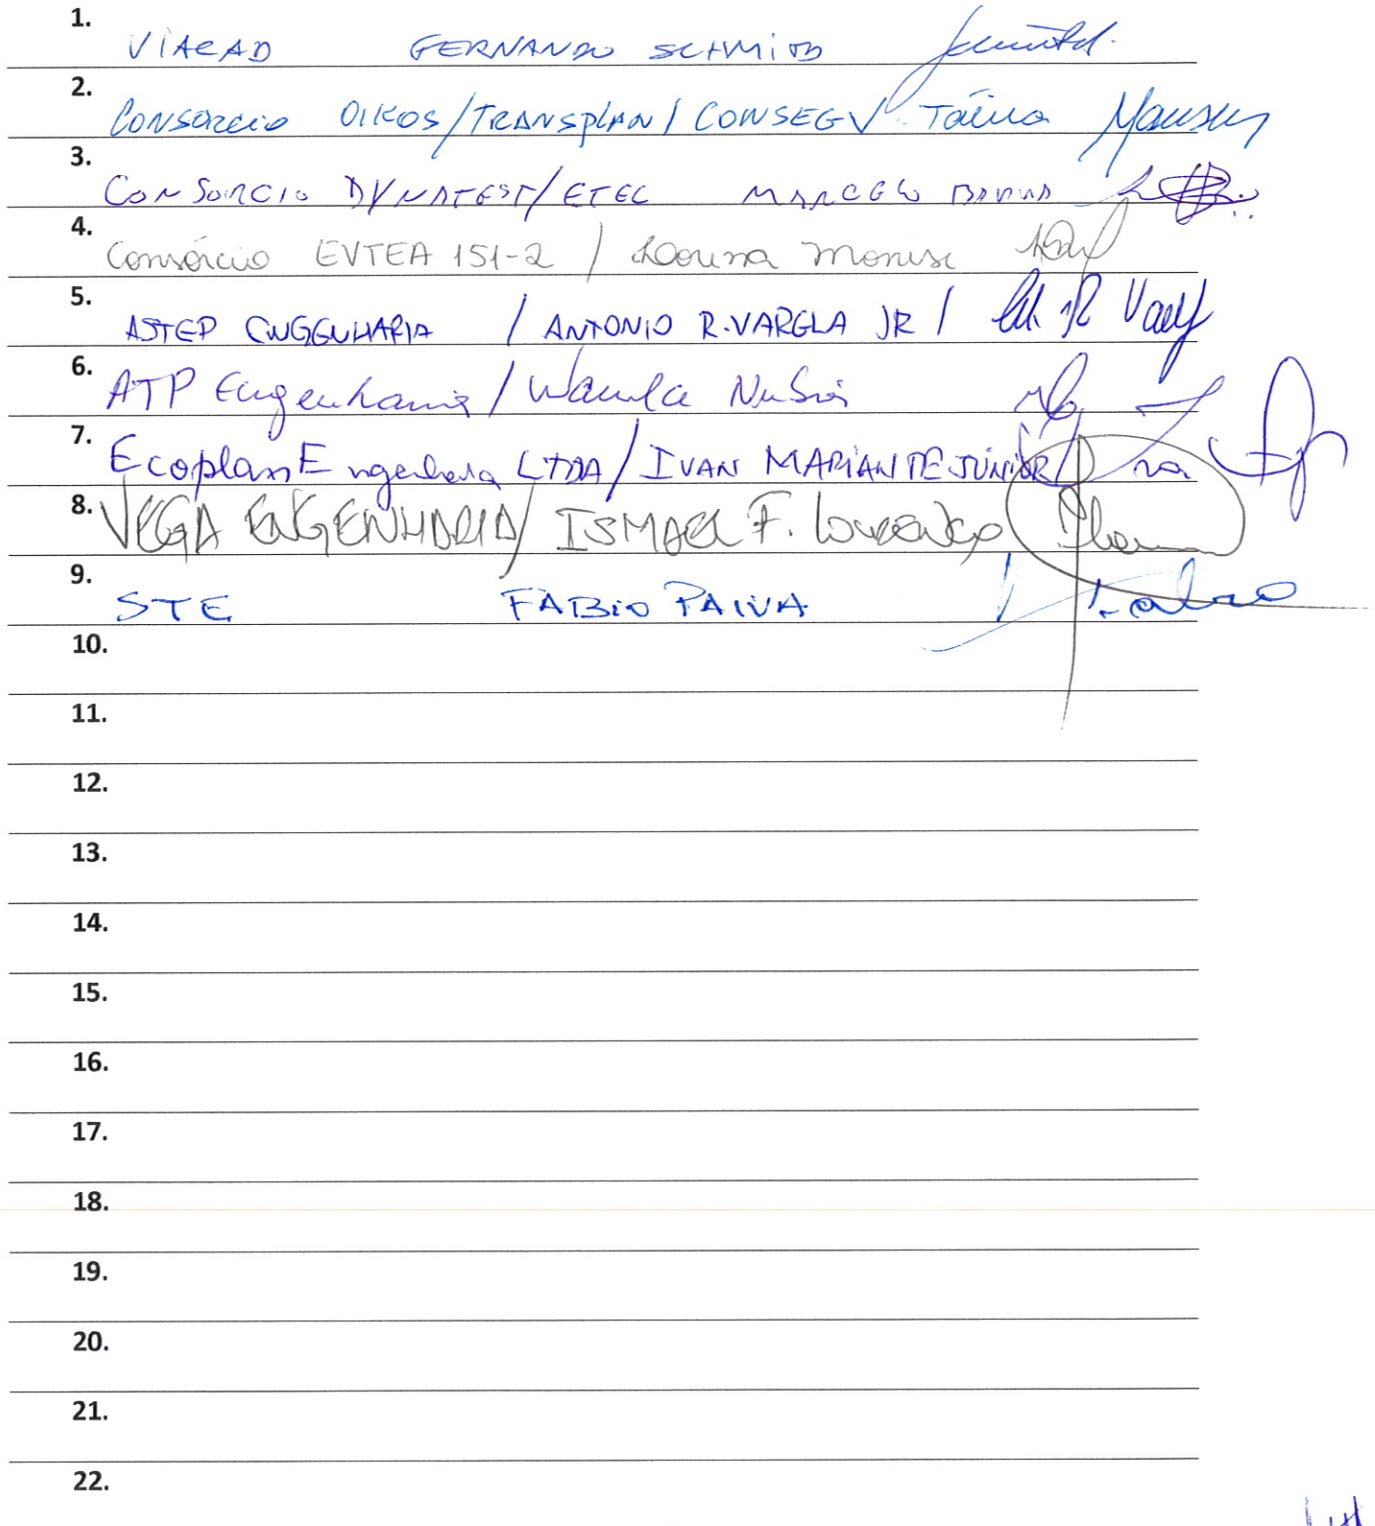 1. VIACAD FERNANDO SCHMIDT
2. Consorcio OIKOS/TRANSPLAN/CONSEGV Táina
3. CONSORCIO DYNATEST/ETEC MARCELO
4. Consórcio EVTEA 151-2 / Lorena Monise
5. ASTEP ENGENHARIA / ANTONIO R. VARGLA JR /
6. ATP Engenharia /
7. Ecoplan Engenharia LTDA/IVAN MARIANTE JÚNIOR/
8. VEGA ENGENHARIA/ ISMAEL F. Lourenço
9. STE FABIO PAIVA
10.
11.
12.
13.
14.
15.
16.
17.
18.
19.
20.
21.
22.